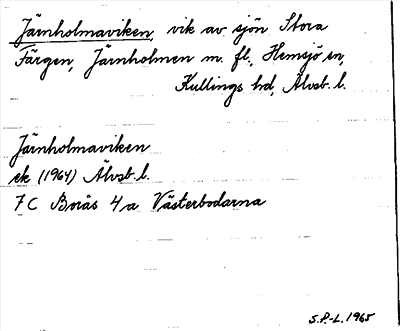 Järnholmaviken, vik av sjön Stora
Färgen, Järnholmen m. fl., Hemsjö sn,
Kullings hd, Älvsb. l.
Järnholmaviken
ek (1964) Älvsb. l.
7C Borås 4a Västerbodarna
S.P.-L. 1965